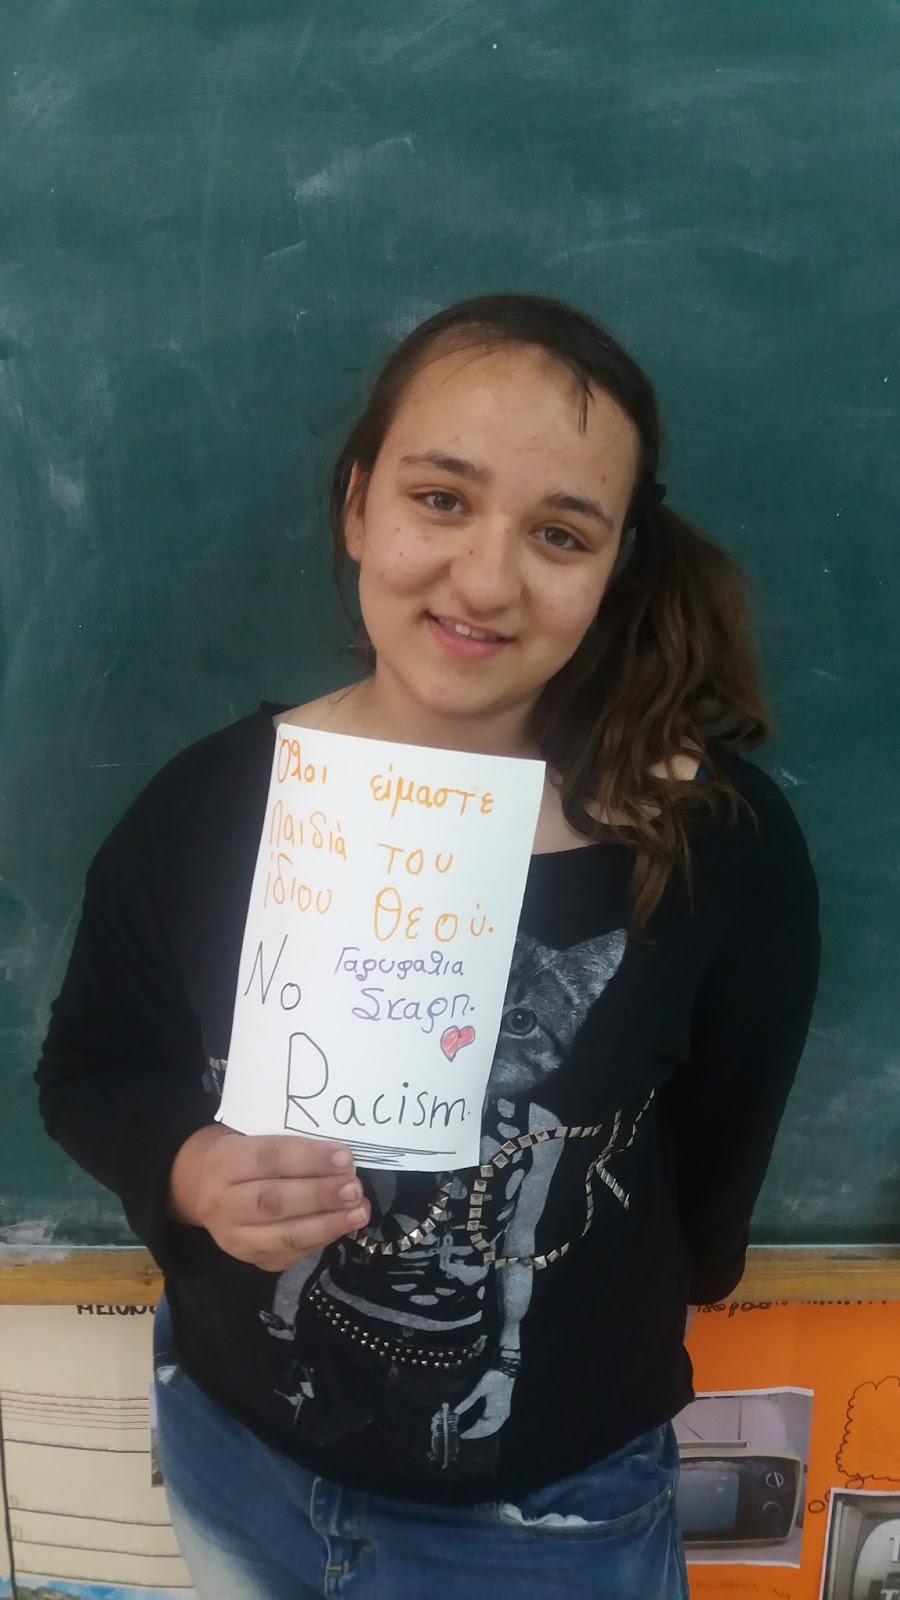 Όλοι είμαστε
παιδιά του
ίδιου Θεού.
Γαρυφαλια
Σκαρπ.
No
Racism.